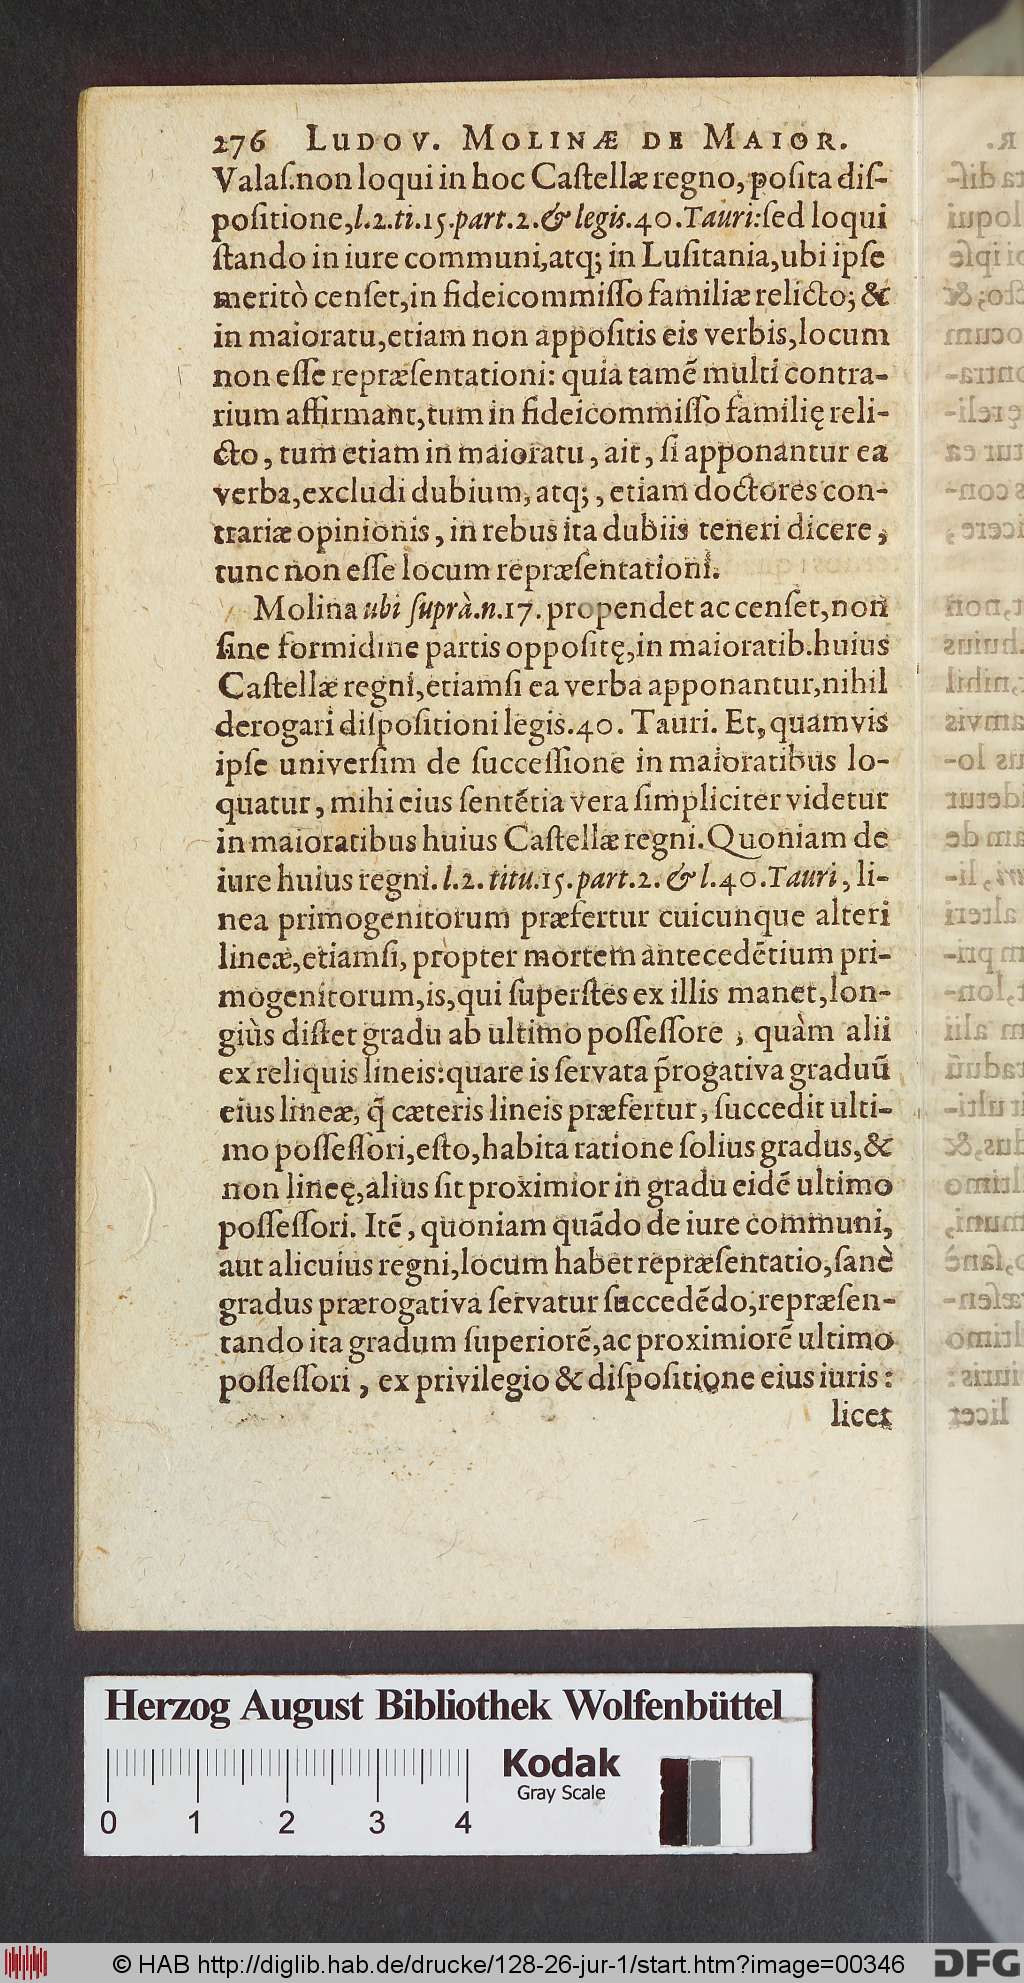 276 LUDOV. MOLINÆ DE MAIOR.
Valaſ. non loqui in hoc Caſtellæ regno, poſita diſ-
poſitione, l.2.ti.15.part.2.& legis.40.Tauri: ſed loqui
ſtando in iure communi, atq; in Luſitania, ubi ipſe
meritò cenſet, in fideicommiſſo familiæ relicto; &
in maioratu, etiam non appoſitis eis verbis, locum
non eſſe repræſentationi: quia tamẽ multi contra-
rium affirmant, tum in fideicommiſſo familię reli-
cto, tum etiam in maioratu, ait, ſi apponantur ea
verba, excludi dubium, atq;, etiam doctores con-
trariæ opinionis, in rebus ita dubiis teneri dicere,
tunc non eſſe locum repræſentationi.
Molina ubi ſuprà.n.17. propendet ac cenſet, non
ſine formidine partis oppoſitę, in maioratib. huius
Caſtellæ regni, etiamſi ea verba apponantur, nihil
derogari diſpoſitioni legis.40. Tauri. Et, quamvis
ipſe univerſim de ſucceſſione in maioratibus lo-
quatur, mihi eius ſentẽtia vera ſimpliciter videtur
in maioratibus huius Caſtellæ regni. Quoniam de
iure huius regni. l.2. titu.15. part.2. & l.40.Tauri, li-
nea primogenitorum præfertur cuicunque alteri
lineæ, etiamſi, propter mortem antecedẽtium pri-
mogenitorum, is, qui ſuperſtes ex illis manet, lon-
giùs diſtet gradu ab ultimo poſſeſſore, quàm alii
ex reliquis lineis: quare is ſervata p̃rogativa graduũ
eius lineæ, q̃ cæteris lineis præfertur, ſuccedit ulti-
mo poſſeſſori, eſto, habita ratione ſolius gradus, &
non lineę, alius ſit proximior in gradu eidẽ ultimo
poſſeſſori. Itẽ, quoniam quãdo de iure communi,
aut alicuius regni, locum habet repræſentatio, ſanè
gradus prærogativa ſervatur ſuccedẽdo, repræſen-
tando ita gradum ſuperiorẽ, ac proximiorẽ ultimo
poſſeſſori, ex privilegio & diſpoſitione eius iuris:
licet
Herzog August Bibliothek Wolfenbüttel
Kodak
Gray Scale
0 1 2 3 4
© HAB http://diglib.hab.de/drucke/128-26-jur-1/start.htm?image=00346
DFG